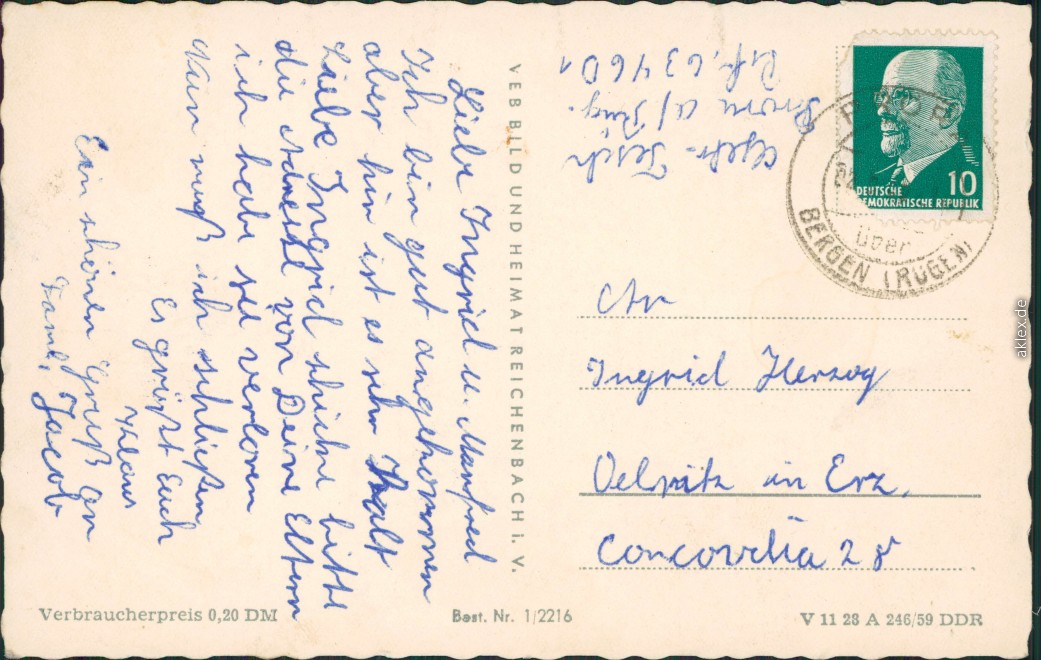 Liebe Ingrid u. Manfred
Ich bin gut angekommen
aber hir ist es sehr kalt
Liebe Ingrid schicke bitte
die adresse von Deine Eltern
ich habe sie verloren
Nun muß ich schließen
Es grüßt Euch
Klaus
Ein schönen Gruß an
Faml. Jacob
VEB BILD UND HEIMAT REICHENBACH i. V.
Verbraucherpreis 0,20 DM
Best. Nr. 1/2216
V 11 28 A 246/59 DDR
634601
DEUTSCHE
DEMOKRATISCHE REPUBLIK
10
über
BERGEN (RÜGEN)
An
Ingrid Herzog
Oelsnitz in Erz.
Concordia 28
aklex.de